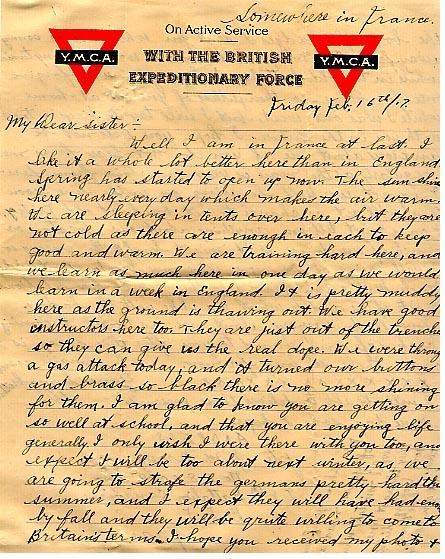 Somewhere in France.
On Active Service
Y.M.C.A. WITH THE BRITISH Y.M.C.A.
EXPEDITIONARY FORCE
Friday Feb. 16th/17
My Dear sister :-
Well I am in France at last. I
like it a whole lot better here than in England
Spring has started to open up now. The sun shin
here nearly every day which makes the air warm.
We are sleeping in tents over here, but they are
not cold as there are enough in each to keep
good and warm. We are training hard here, and
we learn as much here in one day as we would
learn in a week in England. It is pretty muddy
here as the ground is thawing out. We have good
instructors here too. They are just out of the trenche
so they can give us the real dope. We were throug
a gas attack today, and it turned our buttons
and brass so black there is no more shining
for them. I am glad to know you are getting on
so well at school, and that you are enjoying life
generally. I only wish I were there with you too, and
expect I will be too about next winter, as we
are going to strafe the germans pretty hard th
summer, and I expect they will have had eno
by fall and they will be quite willing to come to
Britain's terms. I hope you received my photo +